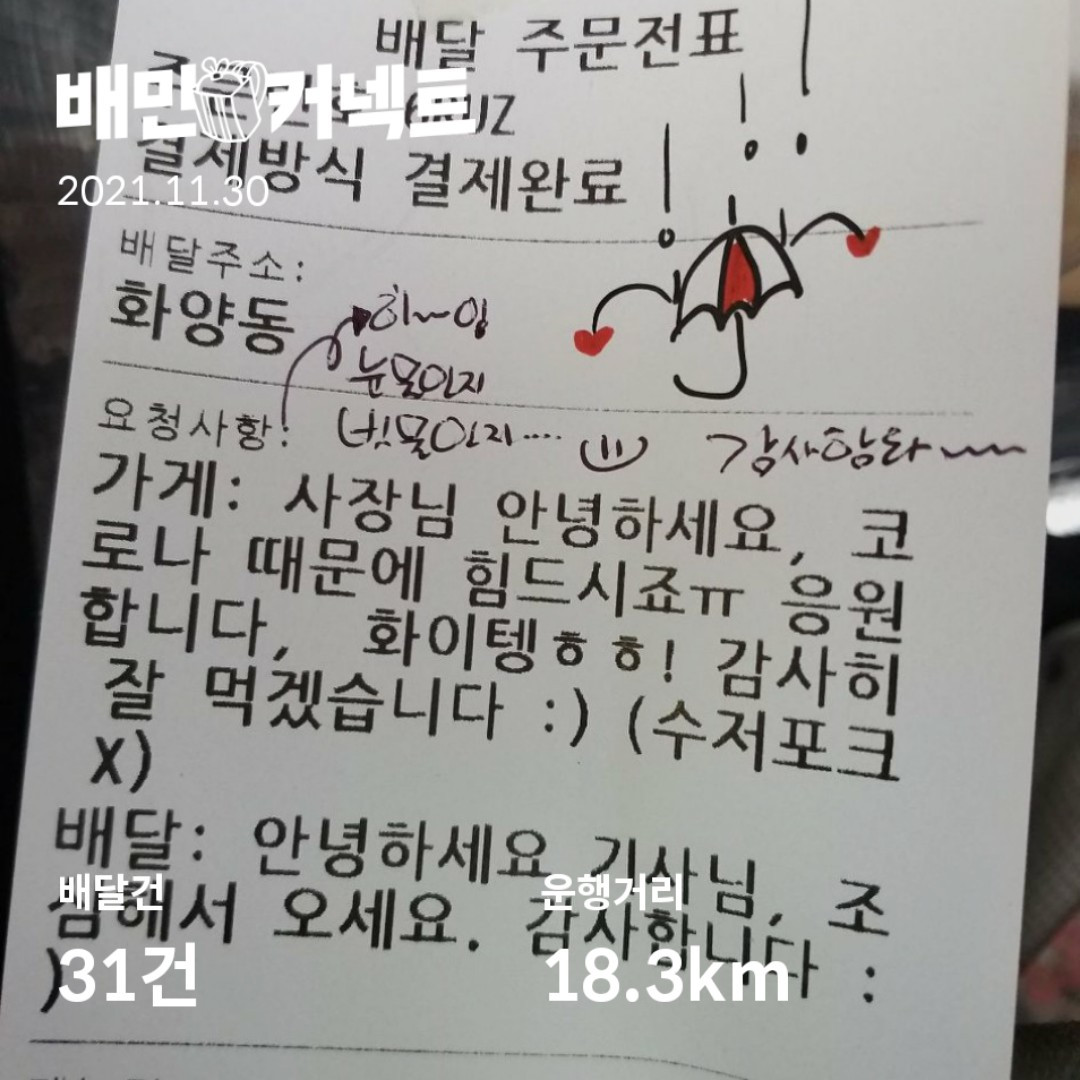 배달 주문전표
배민커넥트
2021.11.30
결제방식 결제완료
배달주소:
화양동
히~잉
눈물인지
빗물인지....
감사함돠~~
요청사항:
가게: 사장님 안녕하세요, 코
로나 때문에 힘드시죠ㅠ 응원
합니다, 화이텡ㅎㅎ! 감사히
잘 먹겠습니다 :) (수저포크
X)
배달: 안녕하세요 기사님, 조
심해서 오세요. 감사합니다 :
)
배달건
운행거리
31건
18.3km